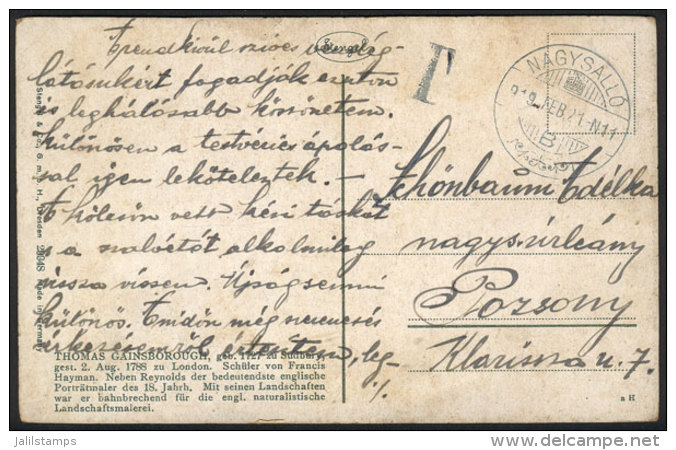 Rendkivül szives vendég-
látásukért fogadják ezuton
is leghálásabb köszönetem.
Különösen a testvéries ápolás-
sal igen lekötelentek. —
A kölcsön vett kézi táskát
s a szalvétát alkalmilag
vissza viszem. Újság semmi
különös. Emidőn még szerencsés
érkezésemről értesítem, leg-
./.
Stengel
T
NAGYSALLÓ
919 FEB 21 - N11
B
Schönbaum Edélka
nagys. úrleány
Pozsony
Klarissa u. 7.
Stengel & Co., G. m. b. H., Dresden 29848 Made in Germany
THOMAS GAINSBOROUGH, geb. 1727 zu Sudbury,
gest. 2. Aug. 1788 zu London. Schüler von Francis
Hayman. Neben Reynolds der bedeutendste englische
Porträtmaler des 18. Jahrh. Mit seinen Landschaften
war er bahnbrechend für die engl. naturalistische
Landschaftsmalerei.
a H
jalilstamps
www.delcampe.net